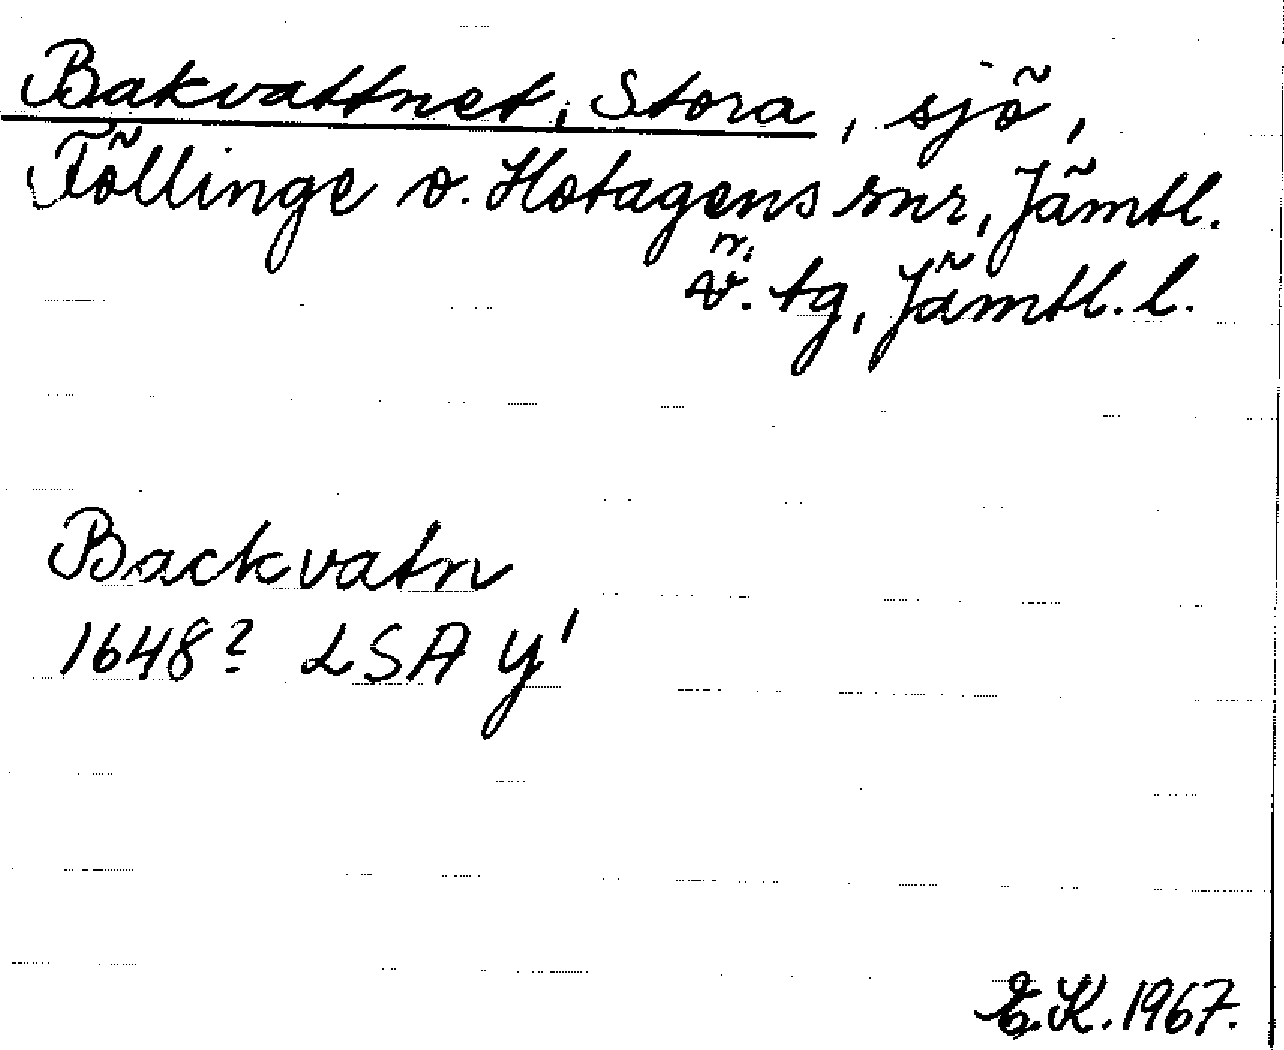 Bakvattnet, Stora, sjö,
Föllinge o. Hotagens snr, Jämtl.
n. v. tg, Jämtl. l.
Backvatn
1648? LSA Y'
E.K. 1967.